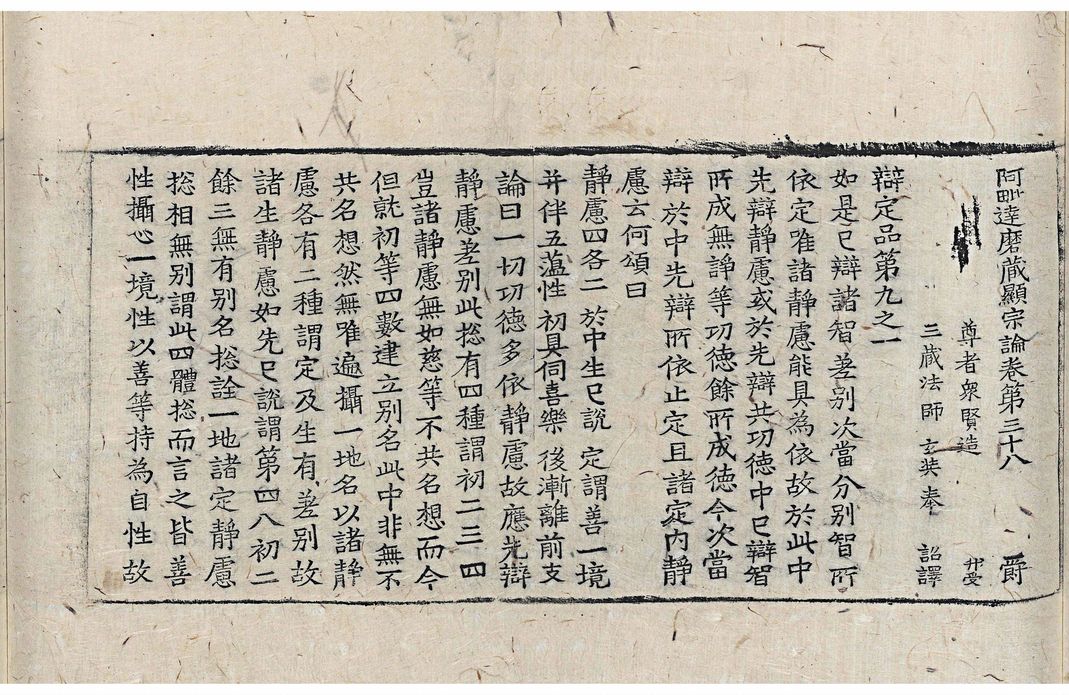 阿毗達磨蔵顯宗論卷第三十八 爵
尊者衆賢造
三蔵法師玄奘奉 詔譯
辯定品第九之一
如是已辯諸智差別次當分別智所
依定唯諸靜慮能具為依故於此中
先辯靜慮或於先辯共功徳中已辯智
所成無諍等功徳餘所成徳今次當
辯於中先辯所依止定且諸定内靜
慮云何頌曰
靜慮四各二 於中生已說 定謂善一境
并伴五蘊性 初具伺喜樂 後漸離前支
論曰一切功徳多依靜慮故應先辯
靜慮差別此捴有四種謂初二三四
豈諸靜慮無如慈等不共名想而今
但就初等四數建立別名此中非無不
共名想然無唯遍攝一地名以諸靜
慮各有二種謂定及生有差別故
諸生靜慮如先已說謂第四八初二
餘三無有别名捴詮一地諸定靜慮
捴相無别謂此四體捴而言之皆善
性攝心一境性以善等持為自性故